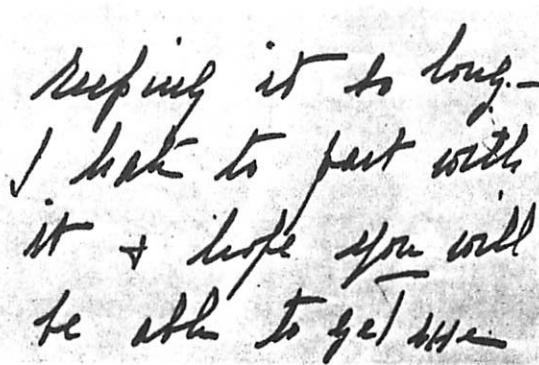 keeping it so long. -
I hate to part with
it + hope you will
be able to get me